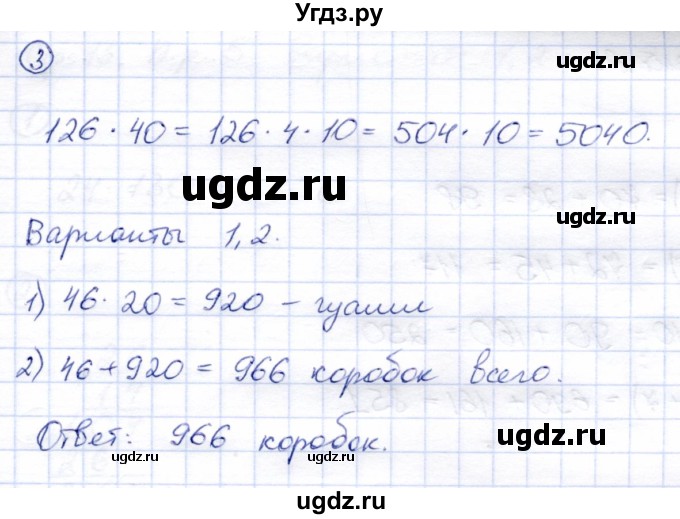 Угдз.ру
ugdz.ru
3
126 · 40 = 126 · 4 · 10 = 504 · 10 = 5040.
ugdz.ru
ugdz.ru
Варианты 1, 2.
1) 46 · 20 = 920 – гуаши
ugdz.ru
2) 46 + 920 = 966 коробок всего.
Ответ: 966 коробок.
ugdz.ru
ugdz.ru
ugdz.ru